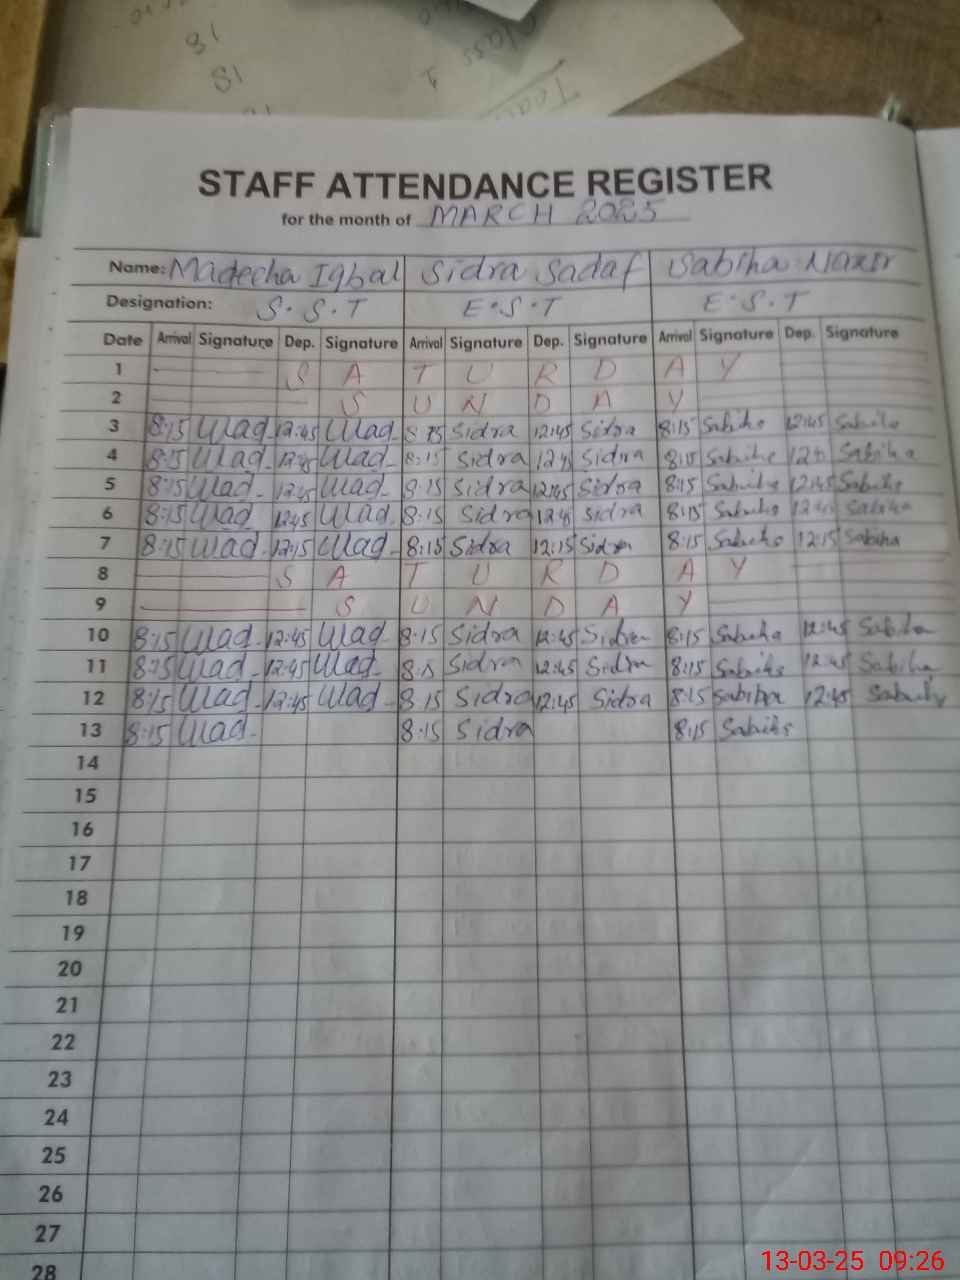 18
18
Class I
STAFF ATTENDANCE REGISTER
for the month of MARCH 2025
Name: Madeeha Iqbal Sidra Sadaf Sabiha Nazir
Designation: S.S.T E.S.T E.S.T
Date Arrival Signature Dep. Signature Arrival Signature Dep. Signature Arrival Signature Dep. Signature
1 S A T U R D A Y
2 S U N D A Y
3 8:15 12:45 8:15 Sidra 12:45 Sidra 8:15 Sabiha 12:45 Sabiha
4 8:15 12:45 8:15 Sidra 12:45 Sidra 8:15 Sabiha 12:45 Sabiha
5 8:15 12:45 8:15 Sidra 12:45 Sidra 8:15 Sabiha 12:45 Sabiha
6 8:15 12:45 8:15 Sidra 12:45 Sidra 8:15 Sabiha 12:45 Sabiha
7 8:15 12:15 8:15 Sidra 12:15 Sidra 8:15 Sabiha 12:15 Sabiha
8 S A T U R D A Y
9 S U N D A Y
10 8:15 12:45 8:15 Sidra 12:45 Sidra 8:15 Sabiha 12:45 Sabiha
11 8:15 12:45 8:15 Sidra 12:45 Sidra 8:15 Sabiha 12:45 Sabiha
12 8:15 12:45 8:15 Sidra 12:45 Sidra 8:15 Sabiha 12:45 Sabiha
13 8:15 8:15 Sidra 8:15 Sabiha
14
15
16
17
18
19
20
21
22
23
24
25
26
27
28
13-03-25 09:26